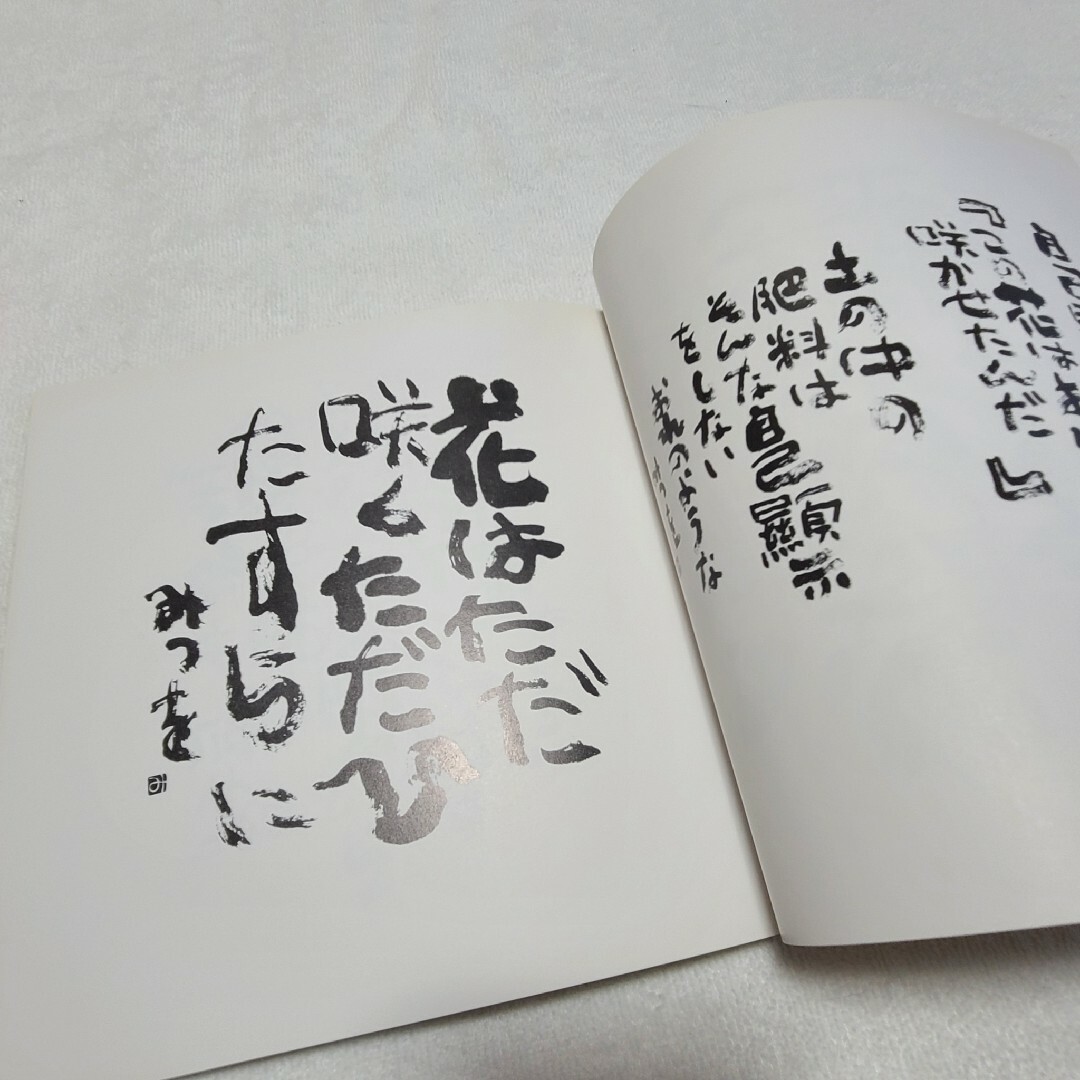 『この花はおれ
咲かせたんだ』
土の中の
肥料は
そんな自己顕示
をしない
おれのような
花はただ
咲くただひ
たすらに
みつを